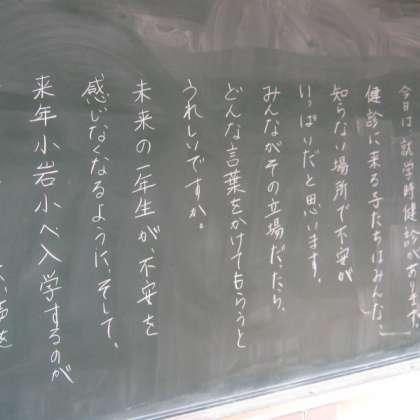 今日は就学時健診があります。
健診に来る子たちはみんな、
知らない場所で不安が
いっぱいだと思います。
みんながその立場だったら、
どんな言葉をかけてもらうと
うれしいですか。
未来の一年生が、不安を
感じなくなるように、そして、
来年小岩小へ入学するのが
声を